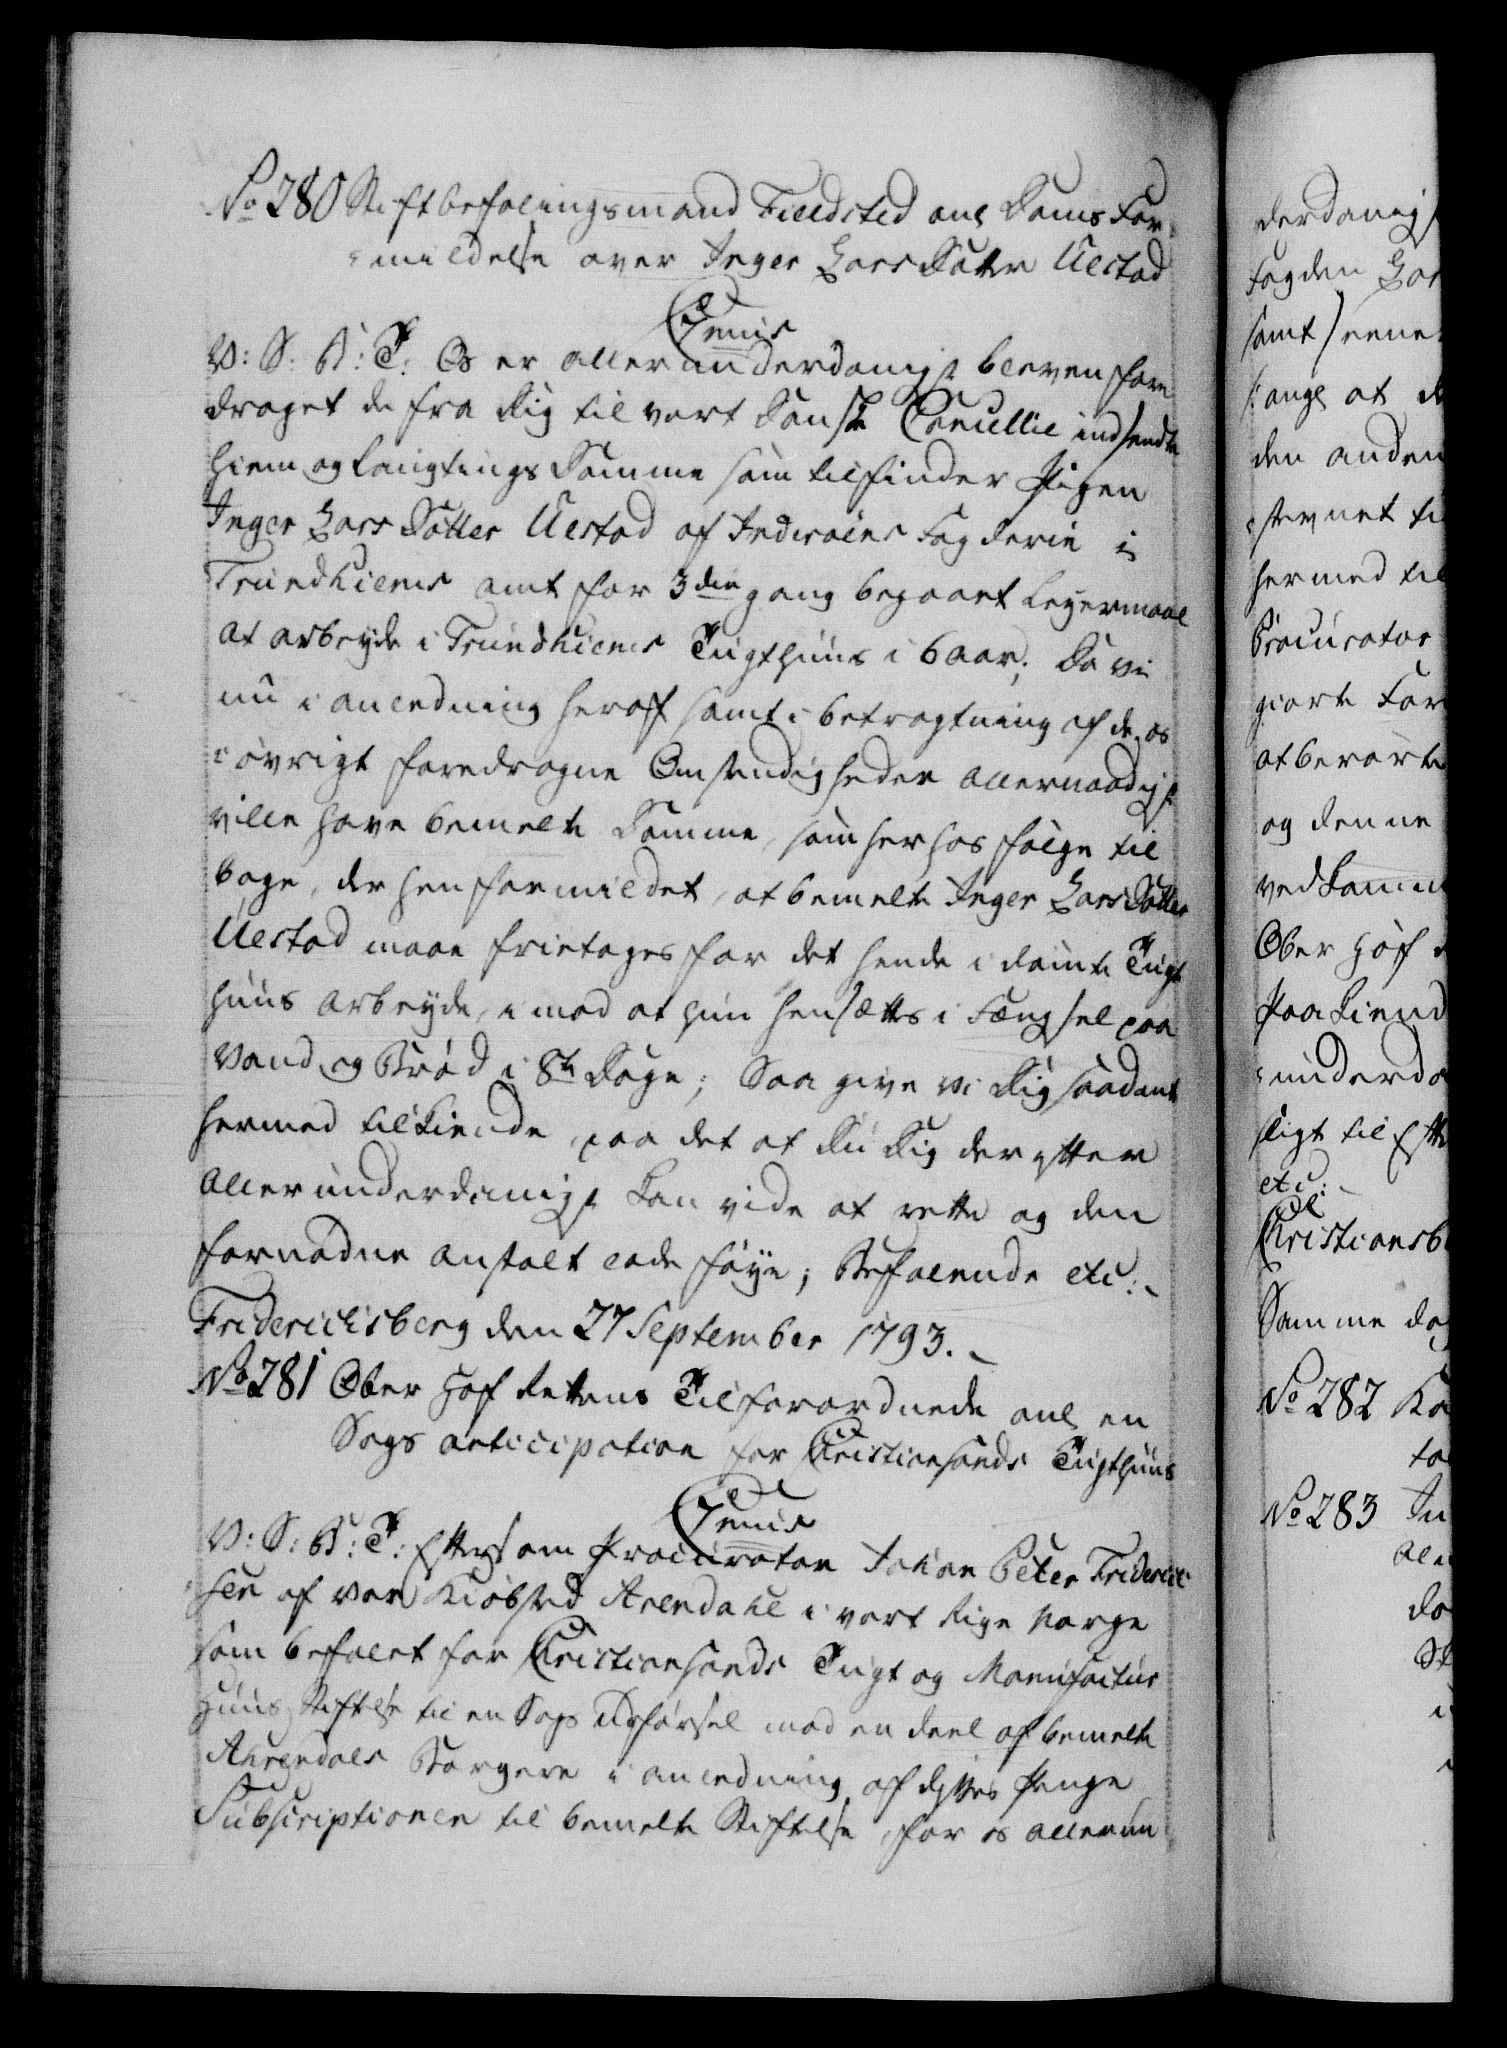 No 280 Stiftbefalingsmand Fieldsted anl Doms For-
-mildelse over Inger Lars Datter Uestad
Cjenis
V: S: B: T: Os er allerunderdanigst bleven fore
draget de fra Dig til vort Danske Cancellie indsendte
Hiem og Laugtings Domme som tilfinder Pigen
Inger Lars Datter Uestad af Inderøens Fogderie i
Trundhiems amt for 3die gang begaaet Leyermaal
at arbeyde i Trundhiems Tugthuus i 6 aar; Da vi
nu i anledning heraf samt i betragtning af de os
i øvrigt foredragne Omstændigheder allernaadigst
ville have bemelte Domme, som herhos følge til
bage, der hen formildet, at bemelte Inger Lars Datter
Uestad maae frietages for det hende i dømte Tugt
huus arbeyde, i mod at hun hensættes i Fængsel paa
Vand og Brød i 8te Dage; Saa give vi Dig saadant
hermed tilkiende, paa det at Du Dig der efter
allerunderdanigst kan vide at rette og den
fornødne anstalt lade føye; Befalende etc:
Friderichsberg den 27 September 1793.
No 281 Ober Hof Rettens Tilforordnede anl en
Sags anticipation for Christiansands Tugthuus
Cjenis
V: S: B: T: Eftersom Procurator Johan Peter Friderich
sen af vor Kiøbsted Arendahl i vort Rige Norge
som befalet for Christiansands Tugt og Manufactur
Huus Stiftelse til en Sags Udførsel mod en deel af bemelte
Ahrendals Borgere i anledning af dettes Penge
Subscriptionen til bemelte Stiftelse, for os allerun
derdanigst
Fogden Lar
samt
ange at de
den anden
stevnet ti
hermed til
Procurator
giorte For
at berørte
og denne
ved komm
Ober Hof
Paakiend
underda
sligt til Efte
etc:
Christiansb
Samme dag
No 282 Ka
to
No 283 In